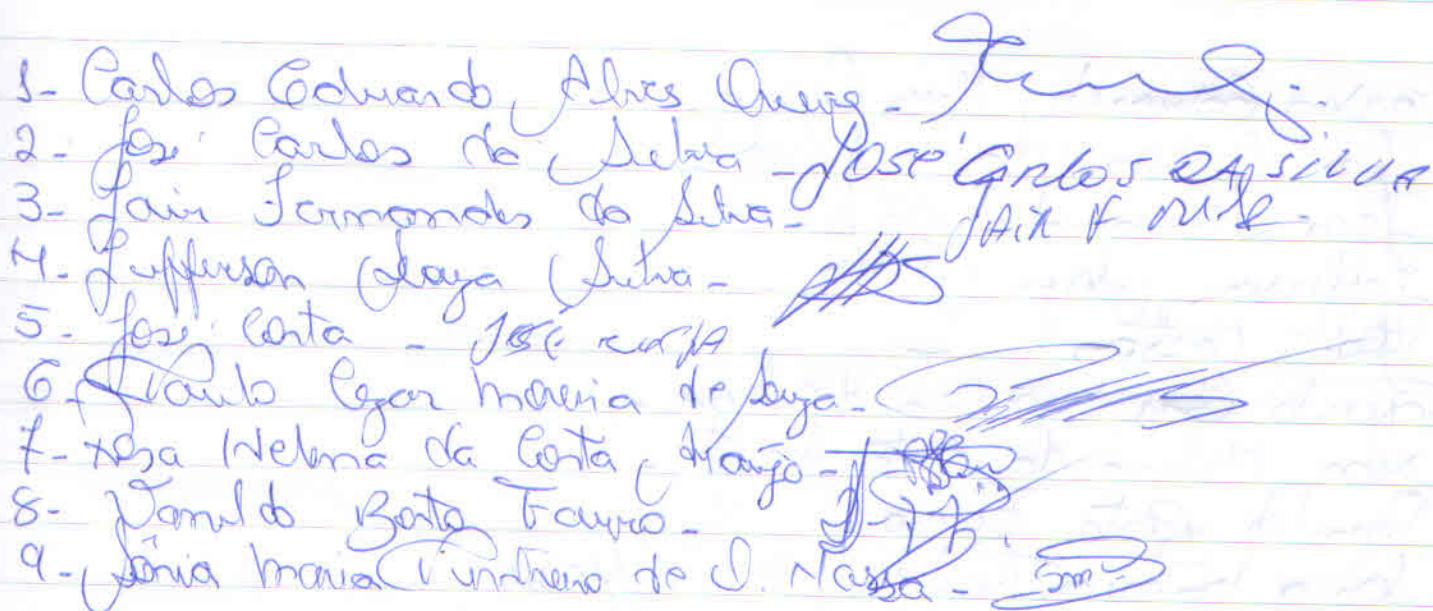 1- Carlos Eduardo Alves Queiroz -
2- José Carlos da Silva - José Carlos da Silva
3- Jair Fernandes da Silva - Jair F
4- Jefferson Silva -
5- José Costa - José Costa
6- Paulo Cezar Moreira de Souza -
7- Rosa Helena da Costa Araújo -
8- Vanildo
9- Sônia Maria de S. Massa -